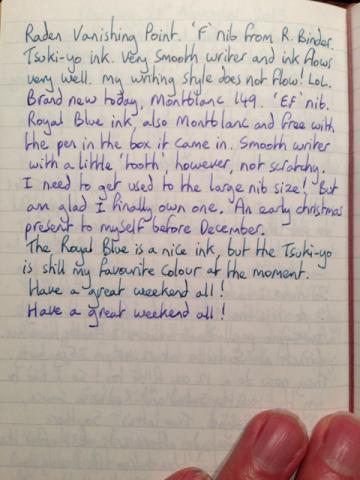 Raden Vanishing Point. 'F' nib from R. Binder.
Tsuki-yo ink. Very smooth writer and ink flows
very well. My writing style does not flow! LOL.
Brand new today, Montblanc 149. 'EF' nib.
Royal Blue ink, also Montblanc and free with
the pen in the box it came in. Smooth writer
with a little 'tooth', however, not scratchy.
I need to get used to the large nib size! But
am glad I finally own one. An early christmas
present to myself before December.
The Royal Blue is a nice ink, but the Tsuki-yo
is still my favourite colour at the moment.
Have a great weekend all!
Have a great weekend all!